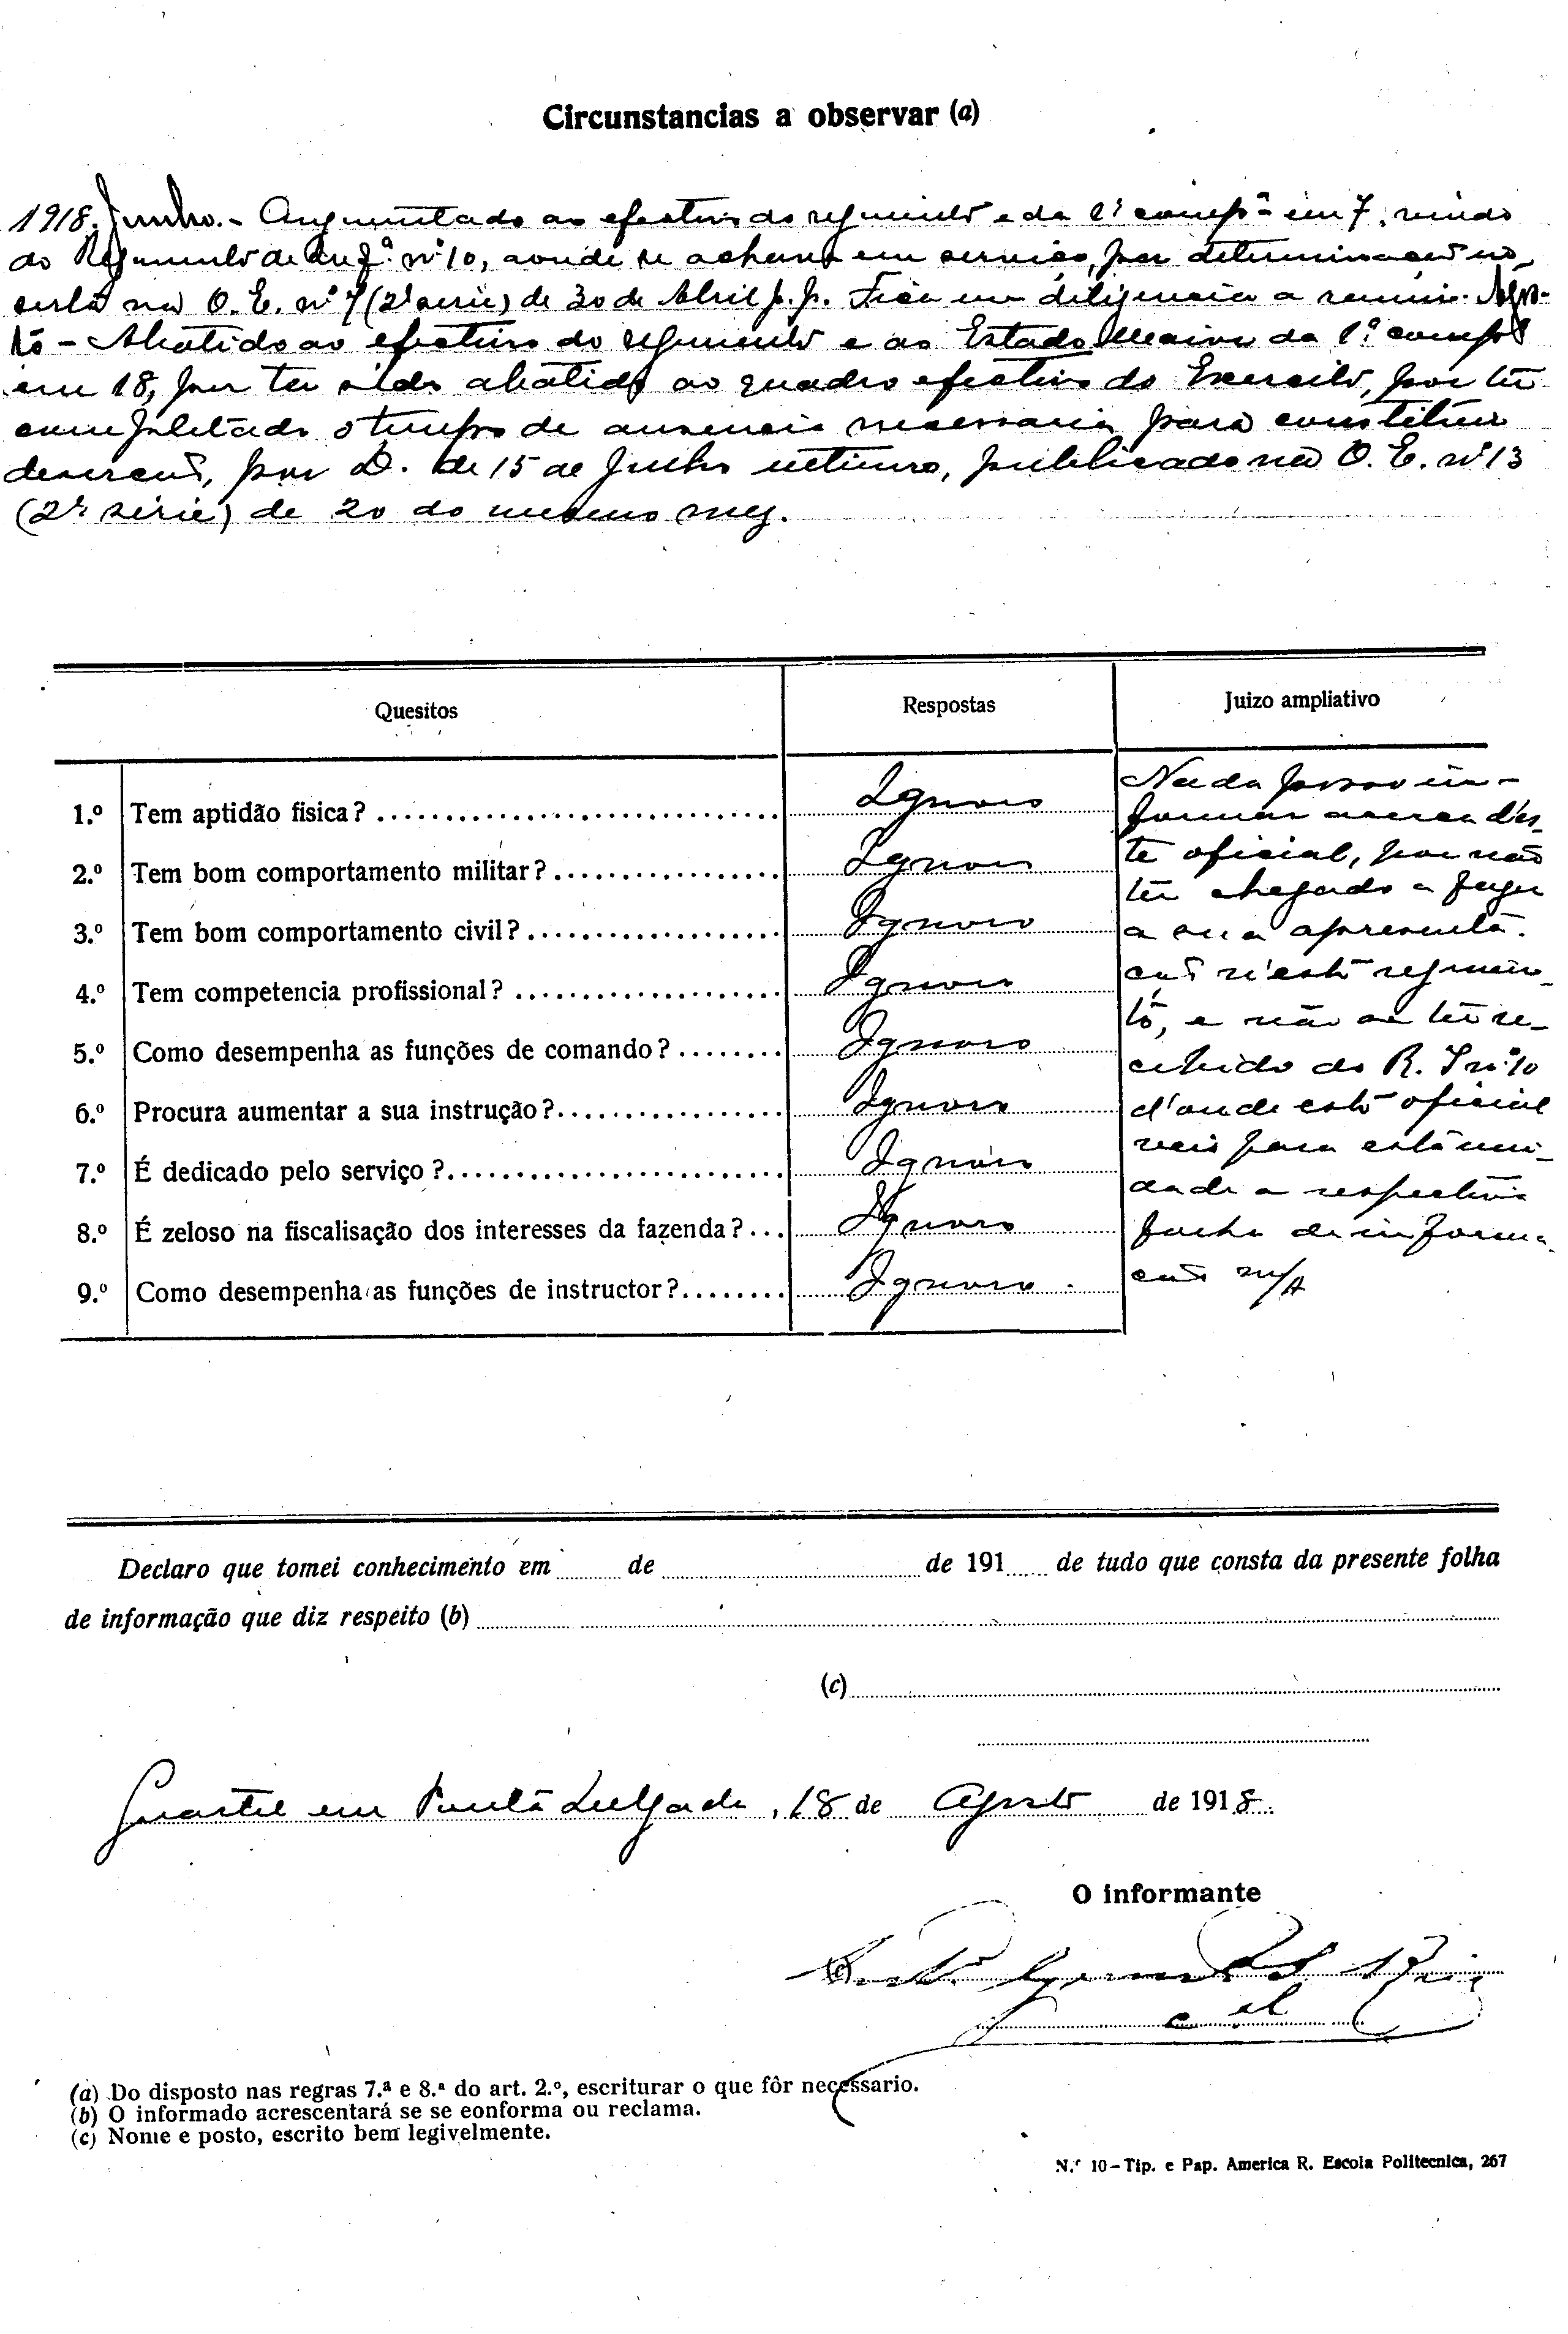 Circunstancias a observar (a)
1918. Junho. - Aumentado ao efectivo do regimento e da 1ª comp.ª em 7, vindo
do Regimento de Inf.ª nº 10, aonde se achava em serviço, por determinação in-
serta na O. E. nº 7 (2ª serie) de 30 de Abril p. p. Fica em diligencia a reunir. Agos-
to - Abatido ao efectivo do regimento e ao Estado Maior da 1ª comp.ª
em 18, por ter sido abatido ao quadro efectivo do Exercito, por ter
completado o tempo de ausencia necessaria para constituir
deserção, por D. de 15 de Julho ultimo, publicado na O. E. nº 13
(2ª série) de 20 do mesmo mez.
Quesitos Respostas Juizo ampliativo
1.º Tem aptidão fisica? Ignoro
2.º Tem bom comportamento militar? Ignoro
3.º Tem bom comportamento civil? Ignoro
4.º Tem competencia profissional? Ignoro
5.º Como desempenha as funções de comando? Ignoro
6.º Procura aumentar a sua instrução? Ignoro
7.º É dedicado pelo serviço? Ignoro
8.º É zeloso na fiscalisação dos interesses da fazenda? Ignoro
9.º Como desempenha as funções de instructor? Ignoro.
Nada posso in-
formar acerca d'es-
te oficial, por não
ter chegado a fazer
a sua apresenta-
ção n'este regimen-
to, e não se ter re-
cebido do R. I nº 10
d'onde este oficial
veio para esta uni-
dade a respectiva
folha de informa-
ção m/A
Declaro que tomei conhecimento em de de 191 de tudo que consta da presente folha
de informação que diz respeito (b)
(c)
Quartel em Ponta Delgada, 18 de Agosto de 1918.
O informante
(a) Do disposto nas regras 7.ª e 8.ª do art. 2.º, escriturar o que fôr necessario.
(b) O informado acrescentará se se eonforma ou reclama.
(c) Nome e posto, escrito bem legivelmente.
N.º 10 - Tip. e Pap. America R. Escola Politecnica, 267